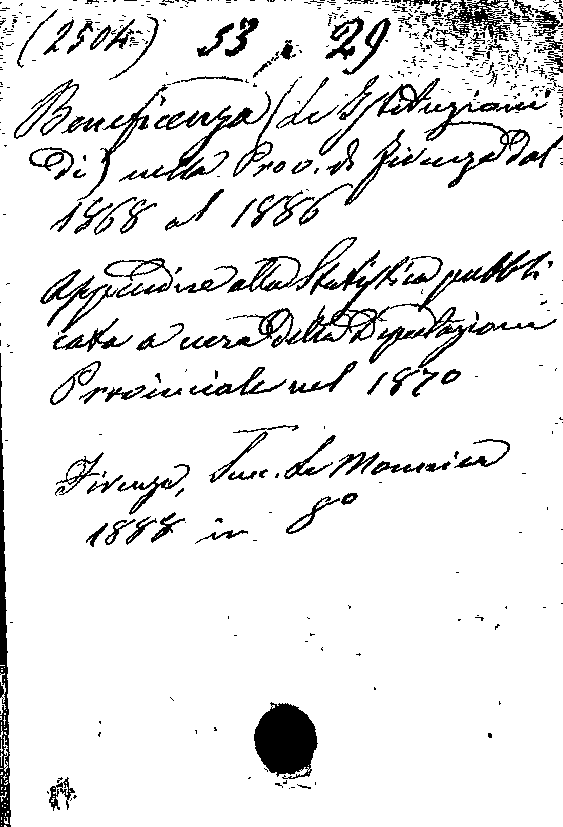 (2504) 53 , 29
Beneficenza (Le Istituzioni
di) nella Prov. di Firenze dal
1868 al 1886
Appendice alla Statistica pubbli
cata a cura della Deputazione
Provinciale nel 1870
Firenze, Succ. Le Monnier
1888 in 8º